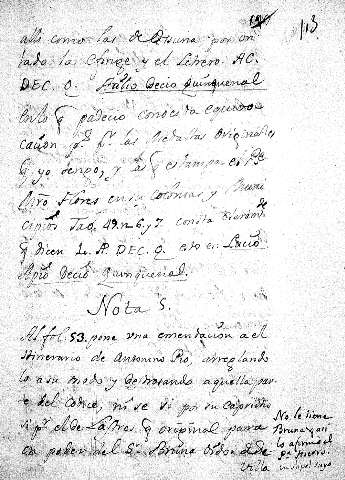 113
alli como las de Osuna por un
lado la Esfinge y el Letrero AC.
DEC. Q. Julio Decio Quinquenal
en lo q padecio conocida equivo-
cacion pr. qe. las Medallas Originales
q yo tengo, y las q estampa el Pe.
Mro. Flores en sus Colonias y Muni
cipios Tab. 49. n. 6. y 7 consta claramte.
q dicen L. A. DEC. Q. esto es Lucio
Apio Decio Quinquenal.
Nota 5.
Al fol. 53. pone una emendacion a el
Itinerario de Antonino Pio, arreglando
lo a su modo y destrosando aquella par
te del Codice, ni se si por su Capricho
ò pr. el de Lastres q original para
en poder del Sr. Bruna Oidor de
Villa
No le tiene
Bruna, asi
lo afirma el
Pe.